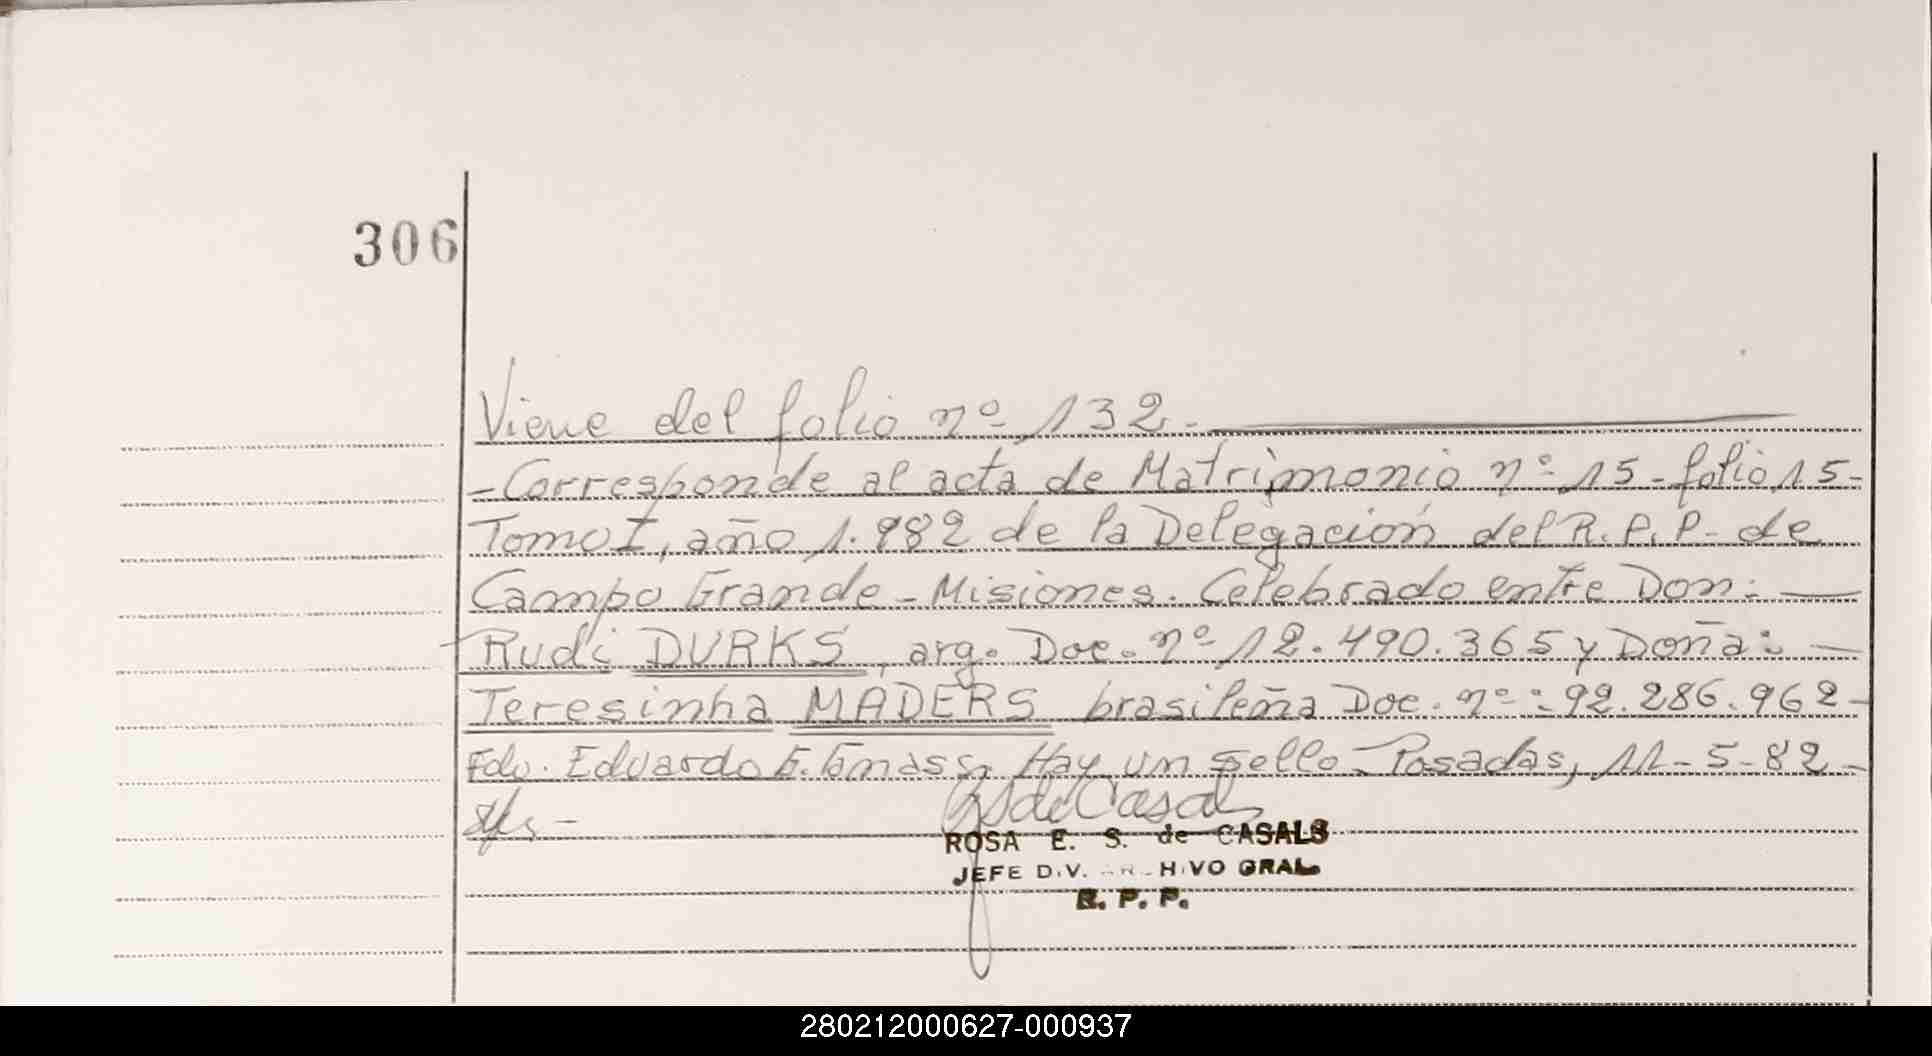 306
Viene del folio nº 132.
- Corresponde al acta de Matrimonio nº 15 - folio 15 -
Tomo I, año 1.982 de la Delegación del R.P.P. de
Campo Grande - Misiones. Celebrado entre Don:
Rudi DURKS, arg. Doc. nº 12.490.365 y Doña:
Teresinha MADERS brasileña Doc. nº: 92.286.962 -
Fdo. Eduardo Hay un sello - Posadas, 11-5-82 -
ROSA E. S. de CASALS
JEFE DIV. ARCHIVO GRAL
R. P. P.
280212000627-000937